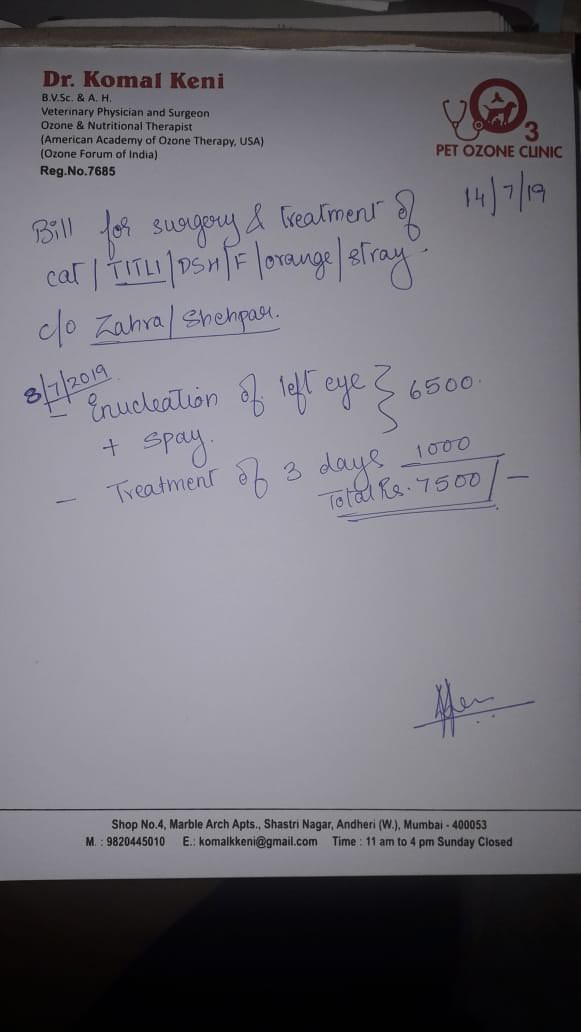 Dr. Komal Keni
B.V.Sc. & A. H.
Veterinary Physician and Surgeon
Ozone & Nutritional Therapist
(American Academy of Ozone Therapy, USA)
(Ozone Forum of India)
Reg.No.7685
3
PET OZONE CLINIC
14/7/19
Bill for surgery & treatment of
cat / TITLI / DSH / F / orange / stray.
c/o Zahra / Shehpar.
8/7/2019
- Enucleation of left eye } 6500.
+ spay.
- Treatment of 3 days 1000
Total Rs. 7500/-
Shop No.4, Marble Arch Apts., Shastri Nagar, Andheri (W.), Mumbai - 400053
M. : 9820445010 E.: komalkkeni@gmail.com Time : 11 am to 4 pm Sunday Closed